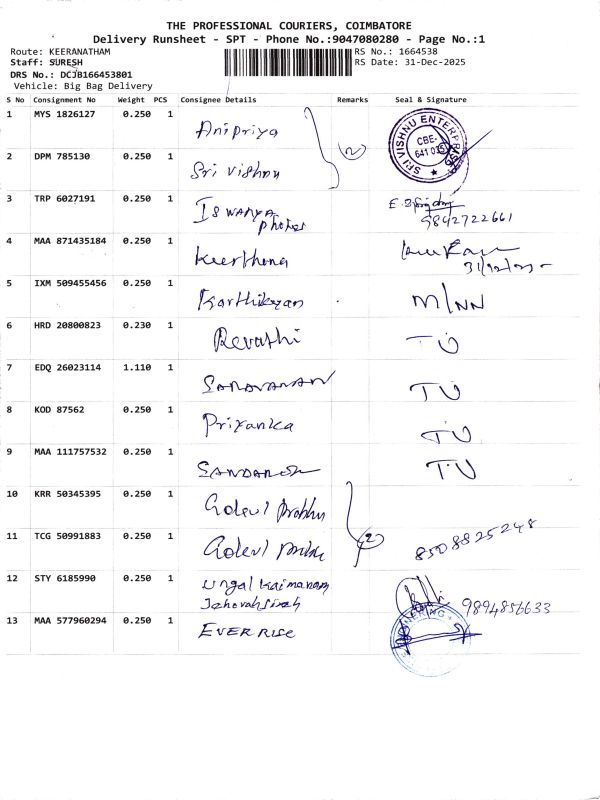 THE PROFESSIONAL COURIERS, COIMBATORE
Delivery Runsheet - SPT - Phone No.:9047080280 - Page No.:1
Route: KEERANATHAM RS No.: 1664538
Staff: SURESH RS Date: 31-Dec-2025
DRS No.: DCJB166453801
Vehicle: Big Bag Delivery
S No Consignment No Weight PCS Consignee Details Remarks Seal & Signature
1 MYS 1826127 0.250 1 Anipriya
SRI VISHNU ENTERPRISES CBE- 641 035
2 DPM 785130 0.250 1 Sri Vishnu (2)
3 TRP 6027191 0.250 1 ISWARYA Photos 9842722661
4 MAA 871435184 0.250 1 Keerthana 31/12/2025
5 IXM 509455456 0.250 1 Karthikeyan M/NN
6 HRD 20800823 0.230 1 Revathi TU
7 EDQ 26023114 1.110 1 SARAVANAN TU
8 KOD 87562 0.250 1 Priyanka TU
9 MAA 111757532 0.250 1 TU
10 KRR 50345395 0.250 1 Prabhu
11 TCG 50991883 0.250 1 (2) 8508825248
12 STY 6185990 0.250 1 ungal Kaimanam
Jehovah 9894856633
13 MAA 577960294 0.250 1 EVER RISE